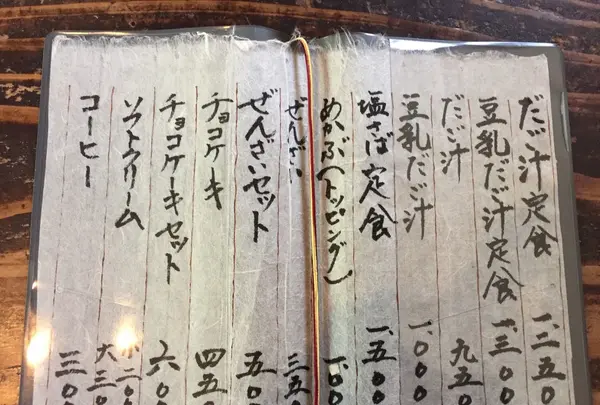 だご汁定食 一、三五〇
豆乳だご汁定食 一、三〇〇
だご汁 九五〇
豆乳だご汁 一、〇〇〇
塩さば定食 一、五〇〇
めかぶ(トッピング) 一〇〇
ぜんざい 三五〇
ぜんざいセット 五〇〇
チョコケーキ 四五〇
チョコケーキセット 六〇〇
ソフトクリーム 小二〇〇 大三〇〇
コーヒー 三〇〇